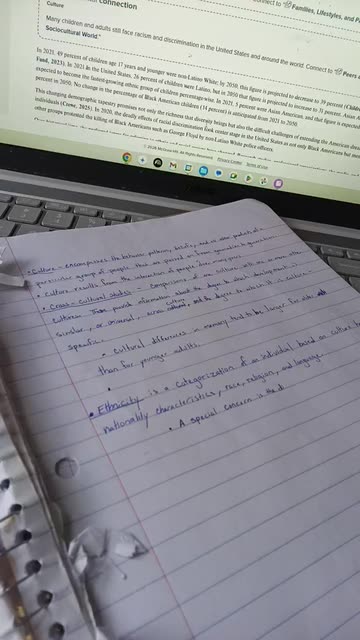 Connection
connect to "Families, Lifestyles, and P
Culture
Many children and adults still face racism and discrimination in the United States and around the world. Connect to "Peers a
Sociocultural World."
In 2021, 49 percent of children age 17 and younger were non-Latino White; by 2050, this figure is projected to decrease to 39 percent (Child
Fund, 2023). In 2021 in the United States, 26 percent of children were Latino, but in 2050 that figure is projected to increase to 31 percent. Asian A
expected to become the fastest-growing ethnic group of children percentage-wise. In 2021, 5 percent were Asian American, and that figure is expe
percent in 2050. No change in the percentage of Black American children (14 percent) is anticipated from 2021 to 2050.
This changing demographic tapestry promises not only the richness that diversity brings but also the difficult challenges of extending the American dream
individuals. In 2020, the deadly effects of racial discrimination took center stage in the United States as not only Black Americans but man
other groups protested the killing of Black Americans such as George Floyd by non-Latino White police officers.
• Culture - encompasses the behavior, patterns, beliefs, and all other products of a
particular group of people that are passed on from generation to generation.
• Culture results from the interaction of people
• Cross-Cultural Studies - Comparisons of one culture with one or more other
cultures. provide information about the degree to which development is
similar, or universal, across cultures, and the degree to which it is culture-
specific.
• Cultural differences in memory tend to be larger for older
than for younger adults.
•
• Ethnicity is a categorization of an individual based on culture
nationality characteristics, race, religion, and language.
• A special concern is the d